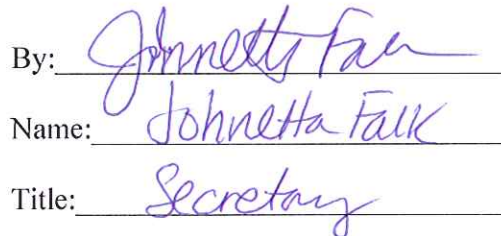 By: Johnetta Falk
Name: Johnetta Falk
Title: Secretary